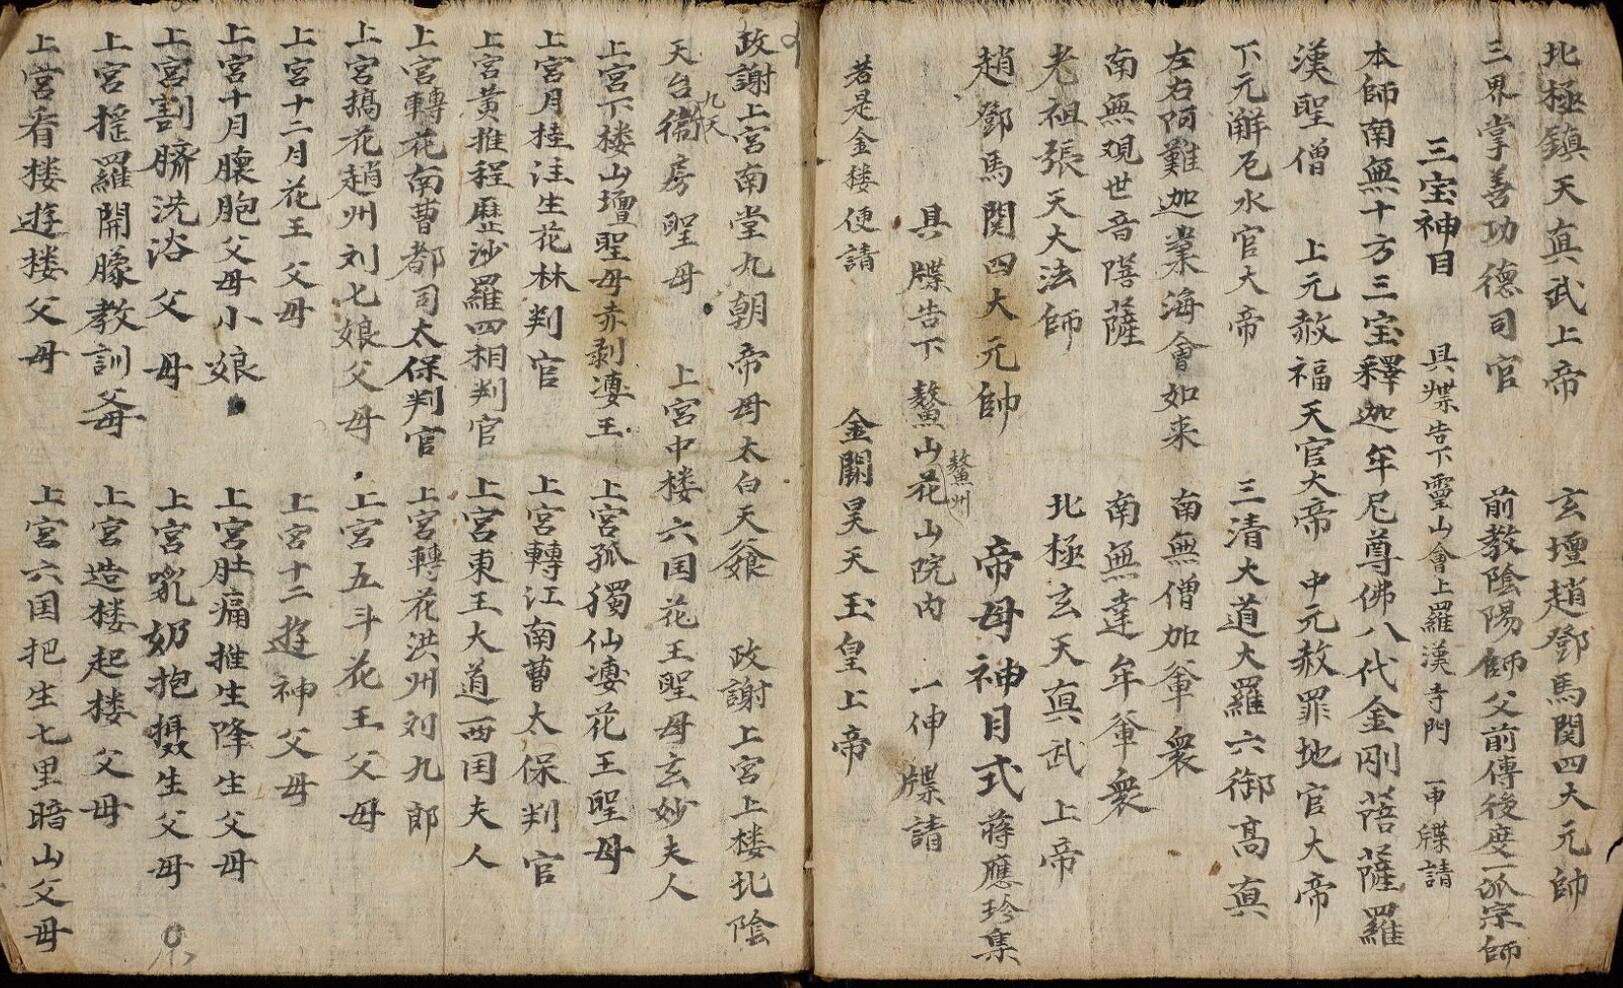 北極鎮天真武上帝 玄壇趙鄧馬関四大元帥
三界掌善功德司官 前教陰陽師父前傳後度一派宗師
三宝神目 具牒告下靈山會上羅漢寺門 一申牒請
本師南無十方三宝釋迦牟尼尊佛八代金刚菩薩羅
漢聖僧 上元赦福天官大帝 中元赦罪地官大帝
下元解厄水官大帝 三清大道大羅六御高真
左右阿難迦葉海會如来 南無僧加軰衆
南無观世音菩薩 南無達牟軰衆
老祖張天大法師 北極玄天真武上帝
趙鄧馬関四大元帥 帝母神目式 蒋應珍集
具牒告下鰲山花山院内 一伸牒請
鰲州
若是金楼便請 金闕昊天玉皇上帝
政謝上宮南堂九朝帝母太白天 政謝上宮上楼北陰
天台衙房聖母 上宮中楼六国花王聖母玄妙夫人
九天
上宮下楼山壇聖母赤剥婆王 上宮孤獨仙婆花王聖母
上宮月桂注生花林判官 上宮轉江南曹太保判官
上宮黄推程歷沙羅四相判官 上宮東王大道西国夫人
上宮轉花南曹都司太保判官 上宮轉花洪州刘九郎
上宮搗花趙州刘七娘父母 上宮五斗花王父母
上宮十二月花王父母 上宮十二遊神父母
上宮十月懐胞父母小娘 上宮肚痛推生降生父母
上宮割臍洗浴父母 上宮乳奶抱摄生父母
上宮摇羅開朦教訓父母 上宮造楼起楼父母
上宮看楼遊楼父母 上宮六国把生七里暗山父母